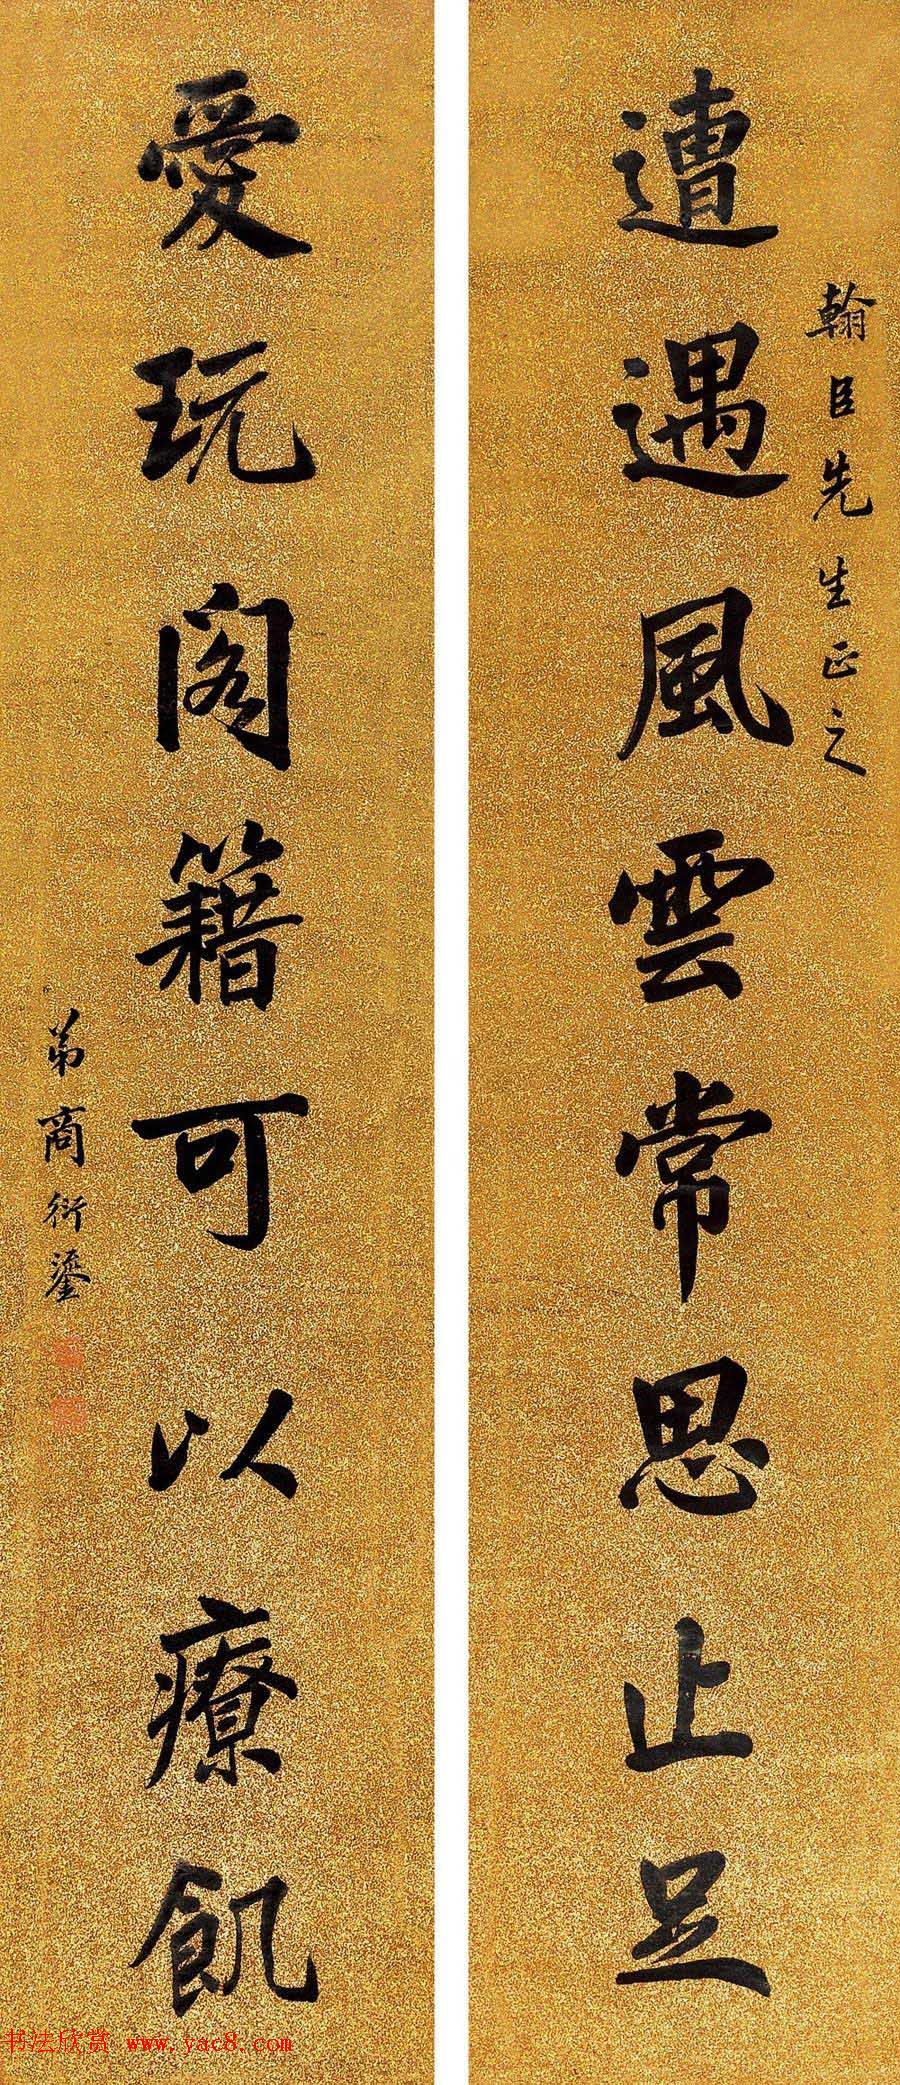 遭遇風雲常思止足
翰臣先生正之
愛玩阁籍可以療飢
弟商衍鎏
书法欣赏 www.yac8.com